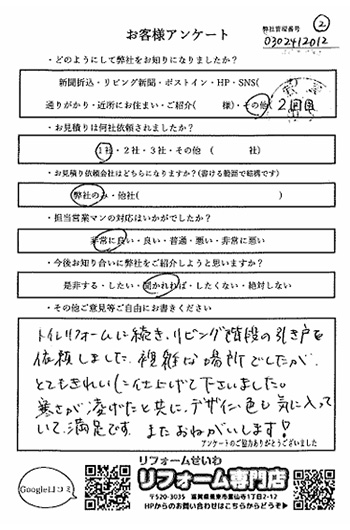 お客様アンケート
弊社管理番号 ②
0302412012
・どのようにして弊社をお知りになりましたか?
新聞折込・リビング新聞・ポストイン・HP・SNS(
通りがかり・近所にお住まい・ご紹介( 様)・その他( 2回目
・お見積りは何社依頼されましたか?
1社・2社・3社・その他 ( 社)
・お見積り依頼会社はどちらになりますか?(書ける範囲で結構です)
弊社のみ・他社( )
・担当営業マンの対応はいかがでしたか?
非常に良い・良い・普通・悪い・非常に悪い
・今後お知り合いに弊社をご紹介しようと思いますか?
是非する・したい・聞かれれば・したくない・絶対しない
・その他ご意見等ご自由にお書きください
トイレリフォームに続き、リビング階段の引き戸を
依頼しました。複雑な場所でしたが、
とてもきれいに仕上げて下さいました。
寒さが凌げたと共に、デザイン、色も気に入って
いて、満足です。またおねがいします!
アンケートのご協力ありがとうございました
Google口コミ
リフォームせいわ
リフォーム専門店
〒520-3035 滋賀県栗東市霊仙寺1丁目2-12
HPからのお問い合わせはこちらからどうぞ▶